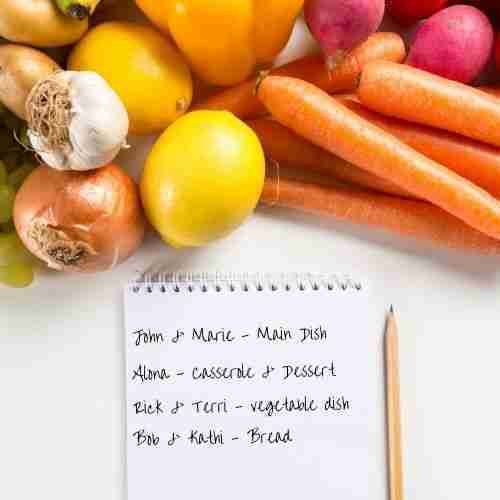 John & Marie - Main Dish
Alona - Casserole & Dessert
Rick & Terri - vegetable dish
Bob & Kathi - Bread